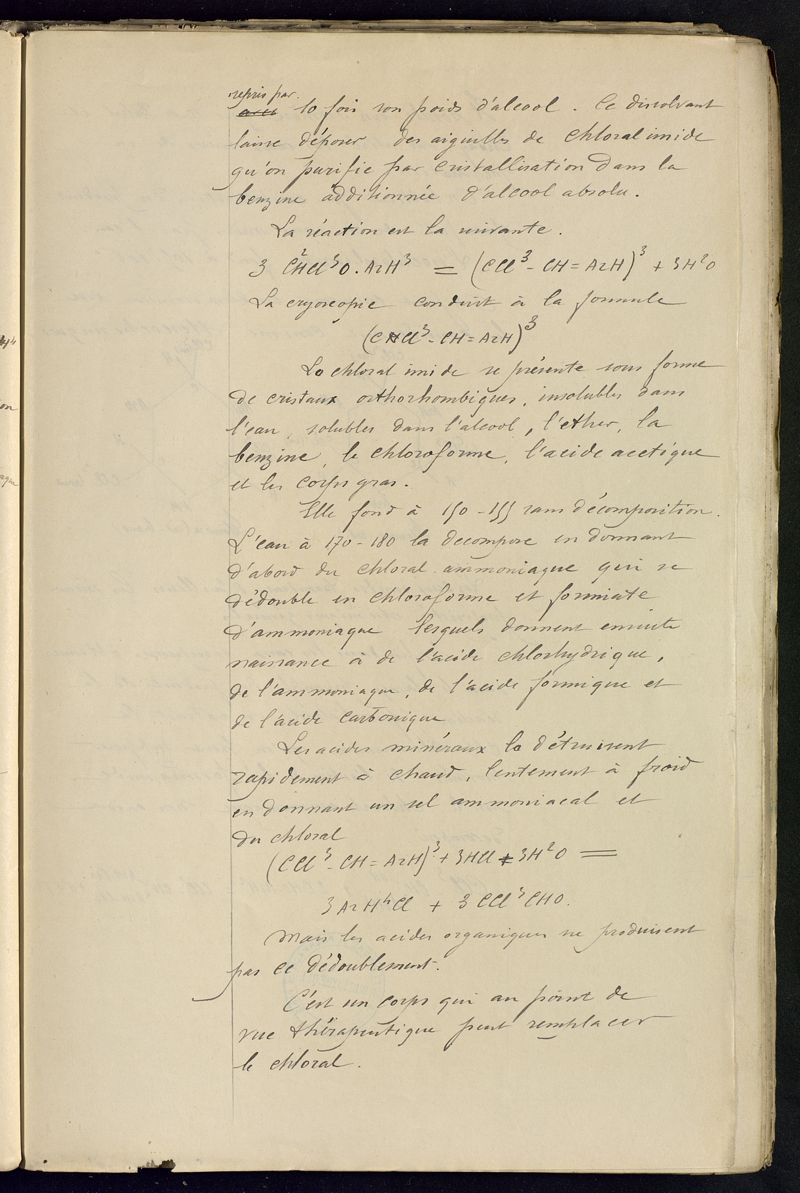 repris par
10 fois son poids d'alcool. Ce dissolvant
laisse déposer des aiguilles de chloralimide
qu'on purifie par cristallisation dans la
benzine additionnée d'alcool absolu.
La réaction est la suivante.
3 C²HCl³O.AzH³ = (CCl³-CH=AzH)³ + 3H²O
La cryoscopie conduit à la formule
(CCl³-CH=AzH)³
La chloralimide se présente sous forme
de cristaux orthorhombiques, insolubles dans
l'eau, solubles dans l'alcool, l'ether, la
benzine, le chloroforme, l'acide acetique
et les corps gras.
Elle fond à 150-155 sans décomposition.
L'eau à 170-180 la decompose en donnant
d'abord du chloral ammoniaque qui se
dédouble en chloroforme et formiate
d'ammoniaque lesquels donnent ensuite
naissance à de l'acide chlorhydrique,
de l'ammoniaque, de l'acide formique et
de l'acide carbonique
Les acides minéraux la détruisent
rapidement à chaud, lentement à froid
en donnant un sel ammoniacal et
du chloral
(CCl³-CH=AzH)³ + 3HCl + 3H²O =
3AzH⁴Cl + 3CCl³CHO.
Mais les acides organiques ne produisent
pas ce dédoublement.
C'est un corps qui au point de
vue thérapeutique peut remplacer
le chloral.